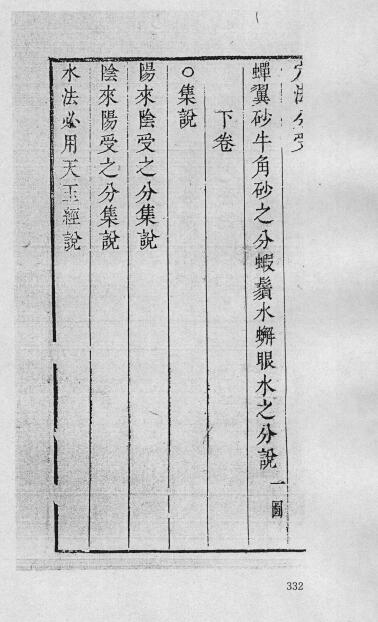 穴法分受
蟬翼砂牛角砂之分蝦鬚水蠏眼水之分說一圖
下卷
○集說
陽來陰受之分集說
陰來陽受之分集說
水法必用天玉經說
332